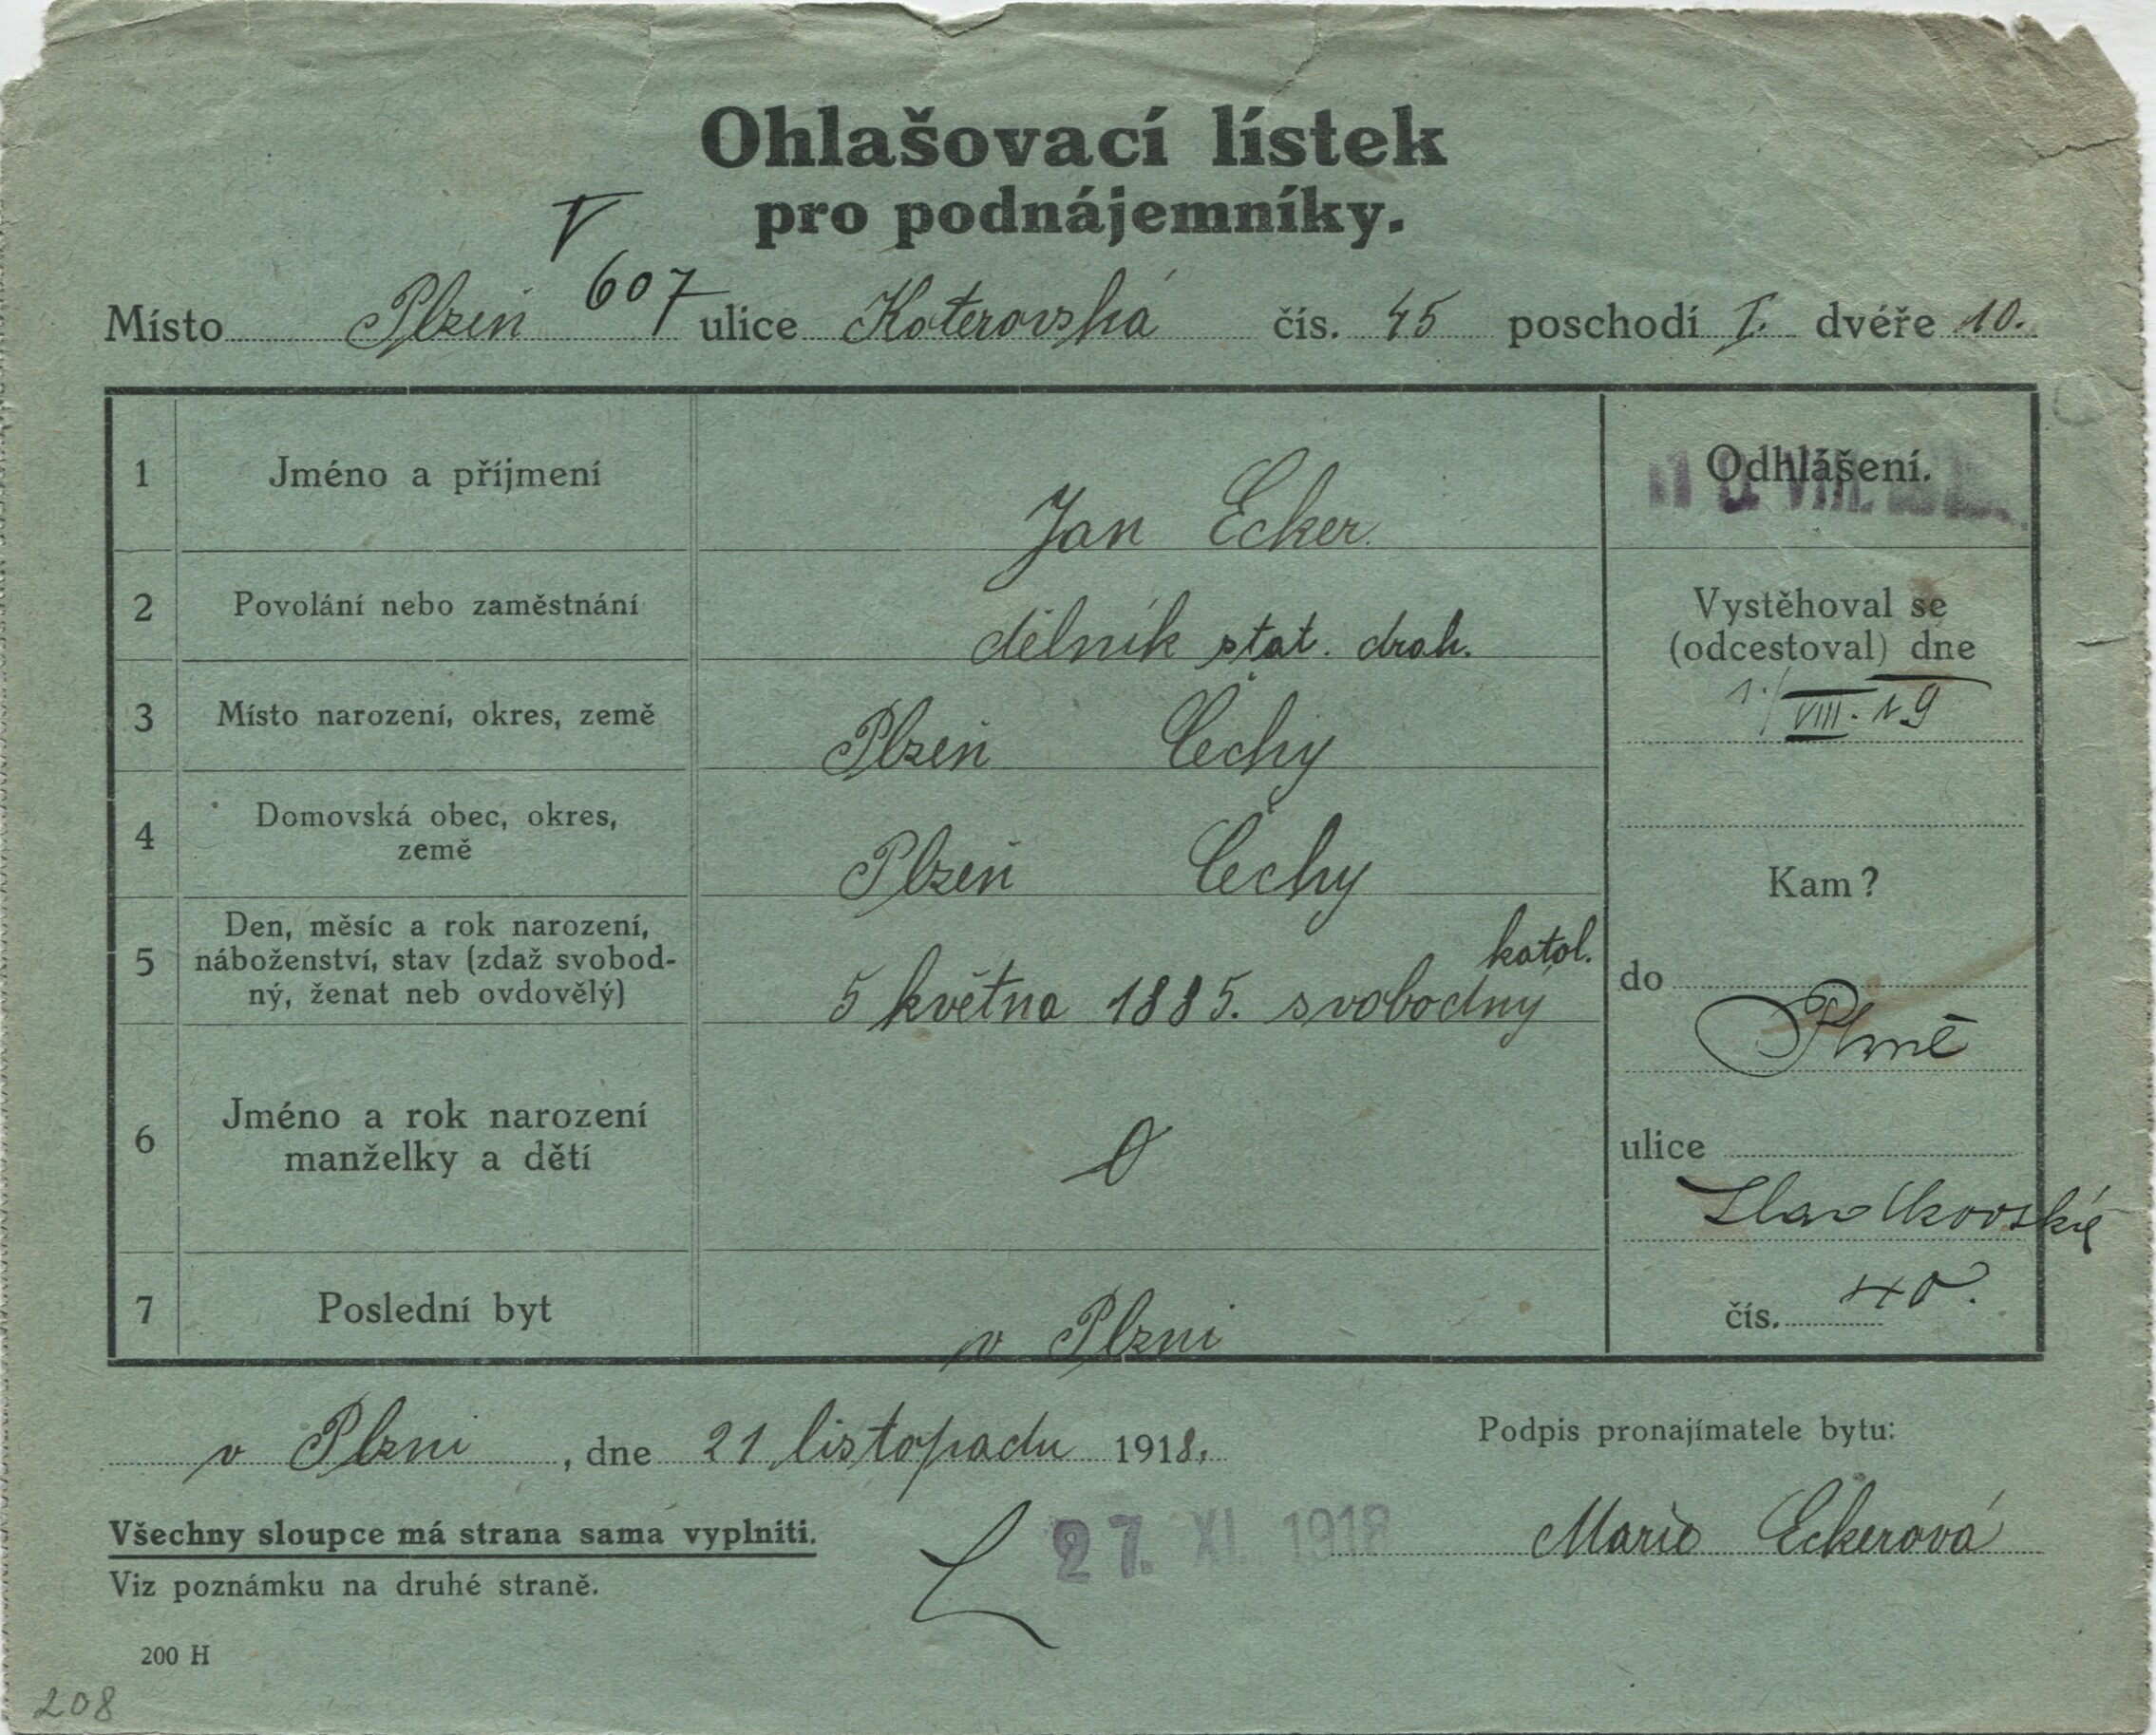 Ohlašovací lístek
pro podnájemníky.
V
607
Místo Plzeň ulice Koterovská čís. 45 poschodí I. dvéře 10.
1 Jméno a příjmení Jan Ecker.
2 Povolání nebo zaměstnání dělník stat. drah.
3 Místo narození, okres, země Plzeň Čechy
4 Domovská obec, okres,
země Plzeň Čechy
5 Den, měsíc a rok narození,
náboženství, stav (zdaž svobod-
ný, ženat neb ovdovělý)
katol.
5 května 1885. svobodný
6 Jméno a rok narození
manželky a dětí
0
7 Poslední byt v Plzni
Odhlášení.
VIII.
Vystěhoval se
(odcestoval) dne
1./VIII. 19
Kam?
do
ulice
čís. 40.
v Plzni, dne 21 listopadu 1918.
Podpis pronajímatele bytu:
Marie Eckerová
Všechny sloupce má strana sama vyplniti.
27. XI 1918
Viz poznámku na druhé straně.
200 H
208